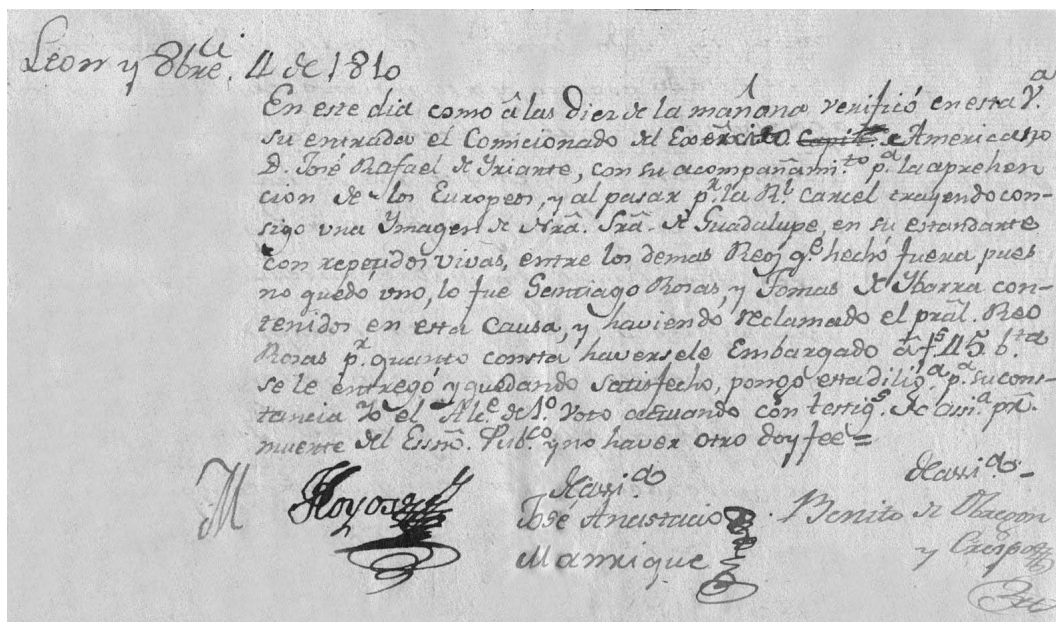 Leon y 8bre. 4 de 1810
En este dia como â las Diez de la mañana verificó en esta V.a
su entrada el Comicionado del Exercito Americano
D. José Rafael de Yriarte, con su acompañami.to p.a la aprehen
cion de los Europeos, y al pasar p.r la R.l Carcel trayendo con-
sigo una Ymagen de Nrâ. Srâ. de Guadalupe, en su estandarte
con repetidos vivas, entre los demas Reos q.e hechó fuera pues
no quedo uno, lo fue Santiago Rosas, y Tomas de Ybarra con-
tenidos en esta Causa, y haviendo reclamado el prâl. Reo
Rosas p.r quanto consta haversele Embargado 45
se le entregó y quedando satisfecho, pongo esta dilig.a p.a su cons-
tancia Yo el Alc.e de 1.o Voto actuando con testig.s de asi.a pr.
muerte del Essnô. Pub.co y no haver otro doy fee =
M Hoyos
de assi.a
de assi.a
José Anastacio
Benito de Obregon
Manrique
y Crespo